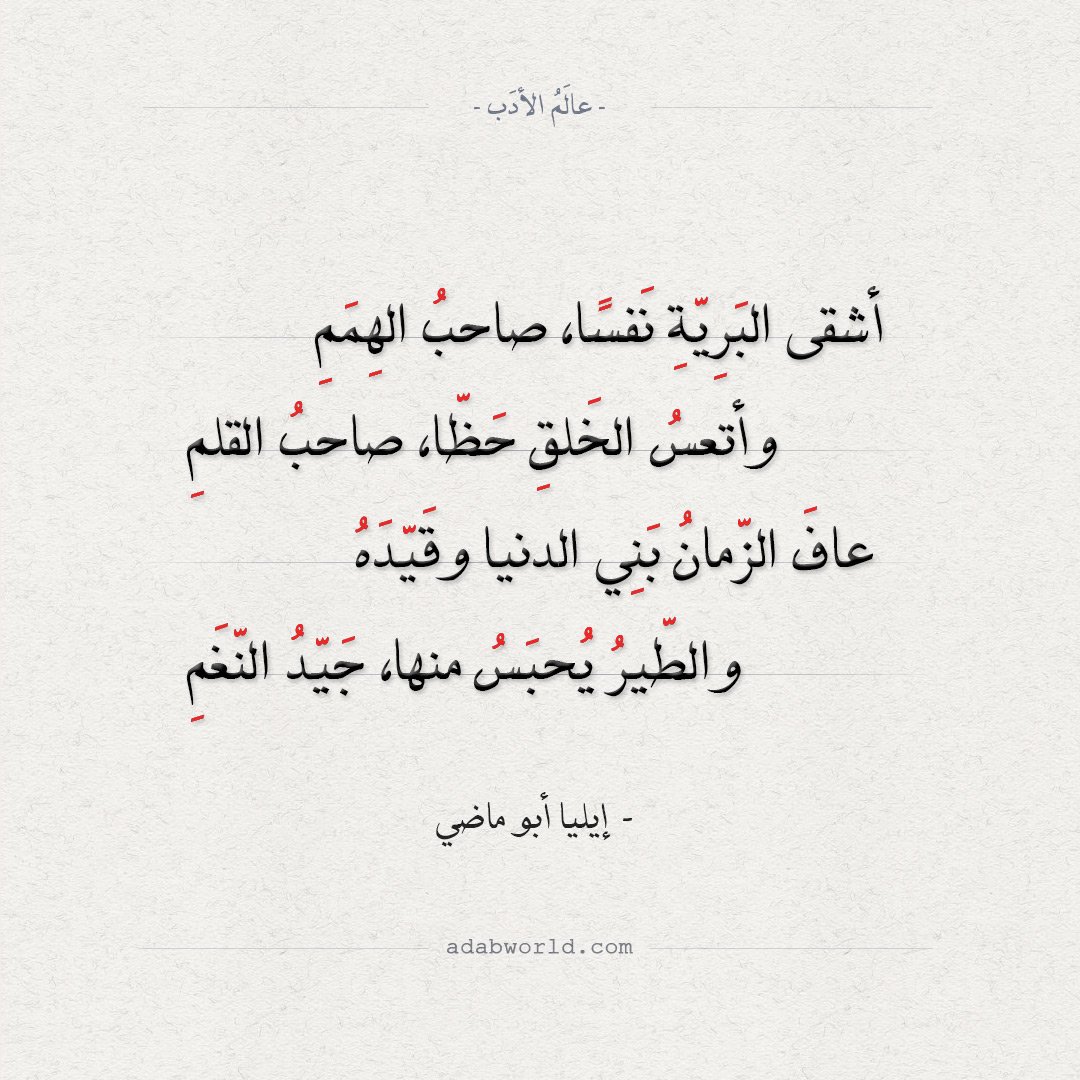 - عالَمُ الأدَب -
أشقى البَرِيّةِ نَفسًا، صاحبُ الهِمَمِ
وأتعسُ الخَلقِ حَظّا، صاحبُ القلمِ
عافَ الزّمانُ بَنِي الدنيا وقَيّدَهُ
والطّيرُ يُحبَسُ منها، جَيّدُ النّغَمِ
- إيليا أبو ماضي
adabworld.com